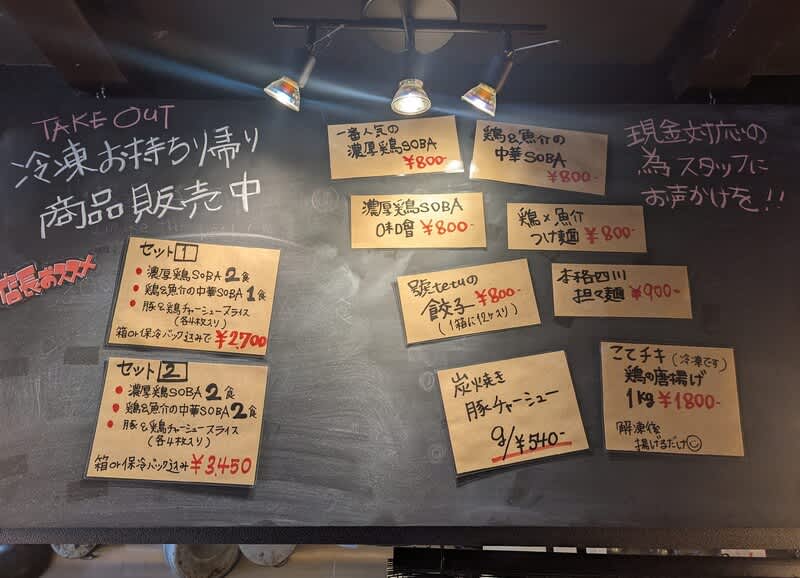 TAKE OUT
冷凍お持ち帰り
商品販売中
店長おススメ
セット1
・濃厚鶏SOBA2食
・鶏&魚介の中華SOBA1食
・豚&鶏チャーシュースライス
(各4枚入り)
箱or保冷バック込みで¥2,700
セット2
・濃厚鶏SOBA2食
・鶏&魚介の中華SOBA2食
・豚&鶏チャーシュースライス
(各4枚入り)
箱or保冷バック込み¥3,450
一番人気の
濃厚鶏SOBA
¥800-
鶏&魚介の
中華SOBA
¥800-
濃厚鶏SOBA
味噌¥800-
鶏×魚介
つけ麺¥800-
號tetuの
餃子¥800-
(1箱に12ケ入り)
本格四川
担々麺¥900-
炭火焼き
豚チャーシュー
g/¥540-
こてチキ(冷凍です)
鶏の唐揚げ
1kg¥1800-
解凍後
揚げるだけ
現金対応の
為スタッフに
お声かけを!!